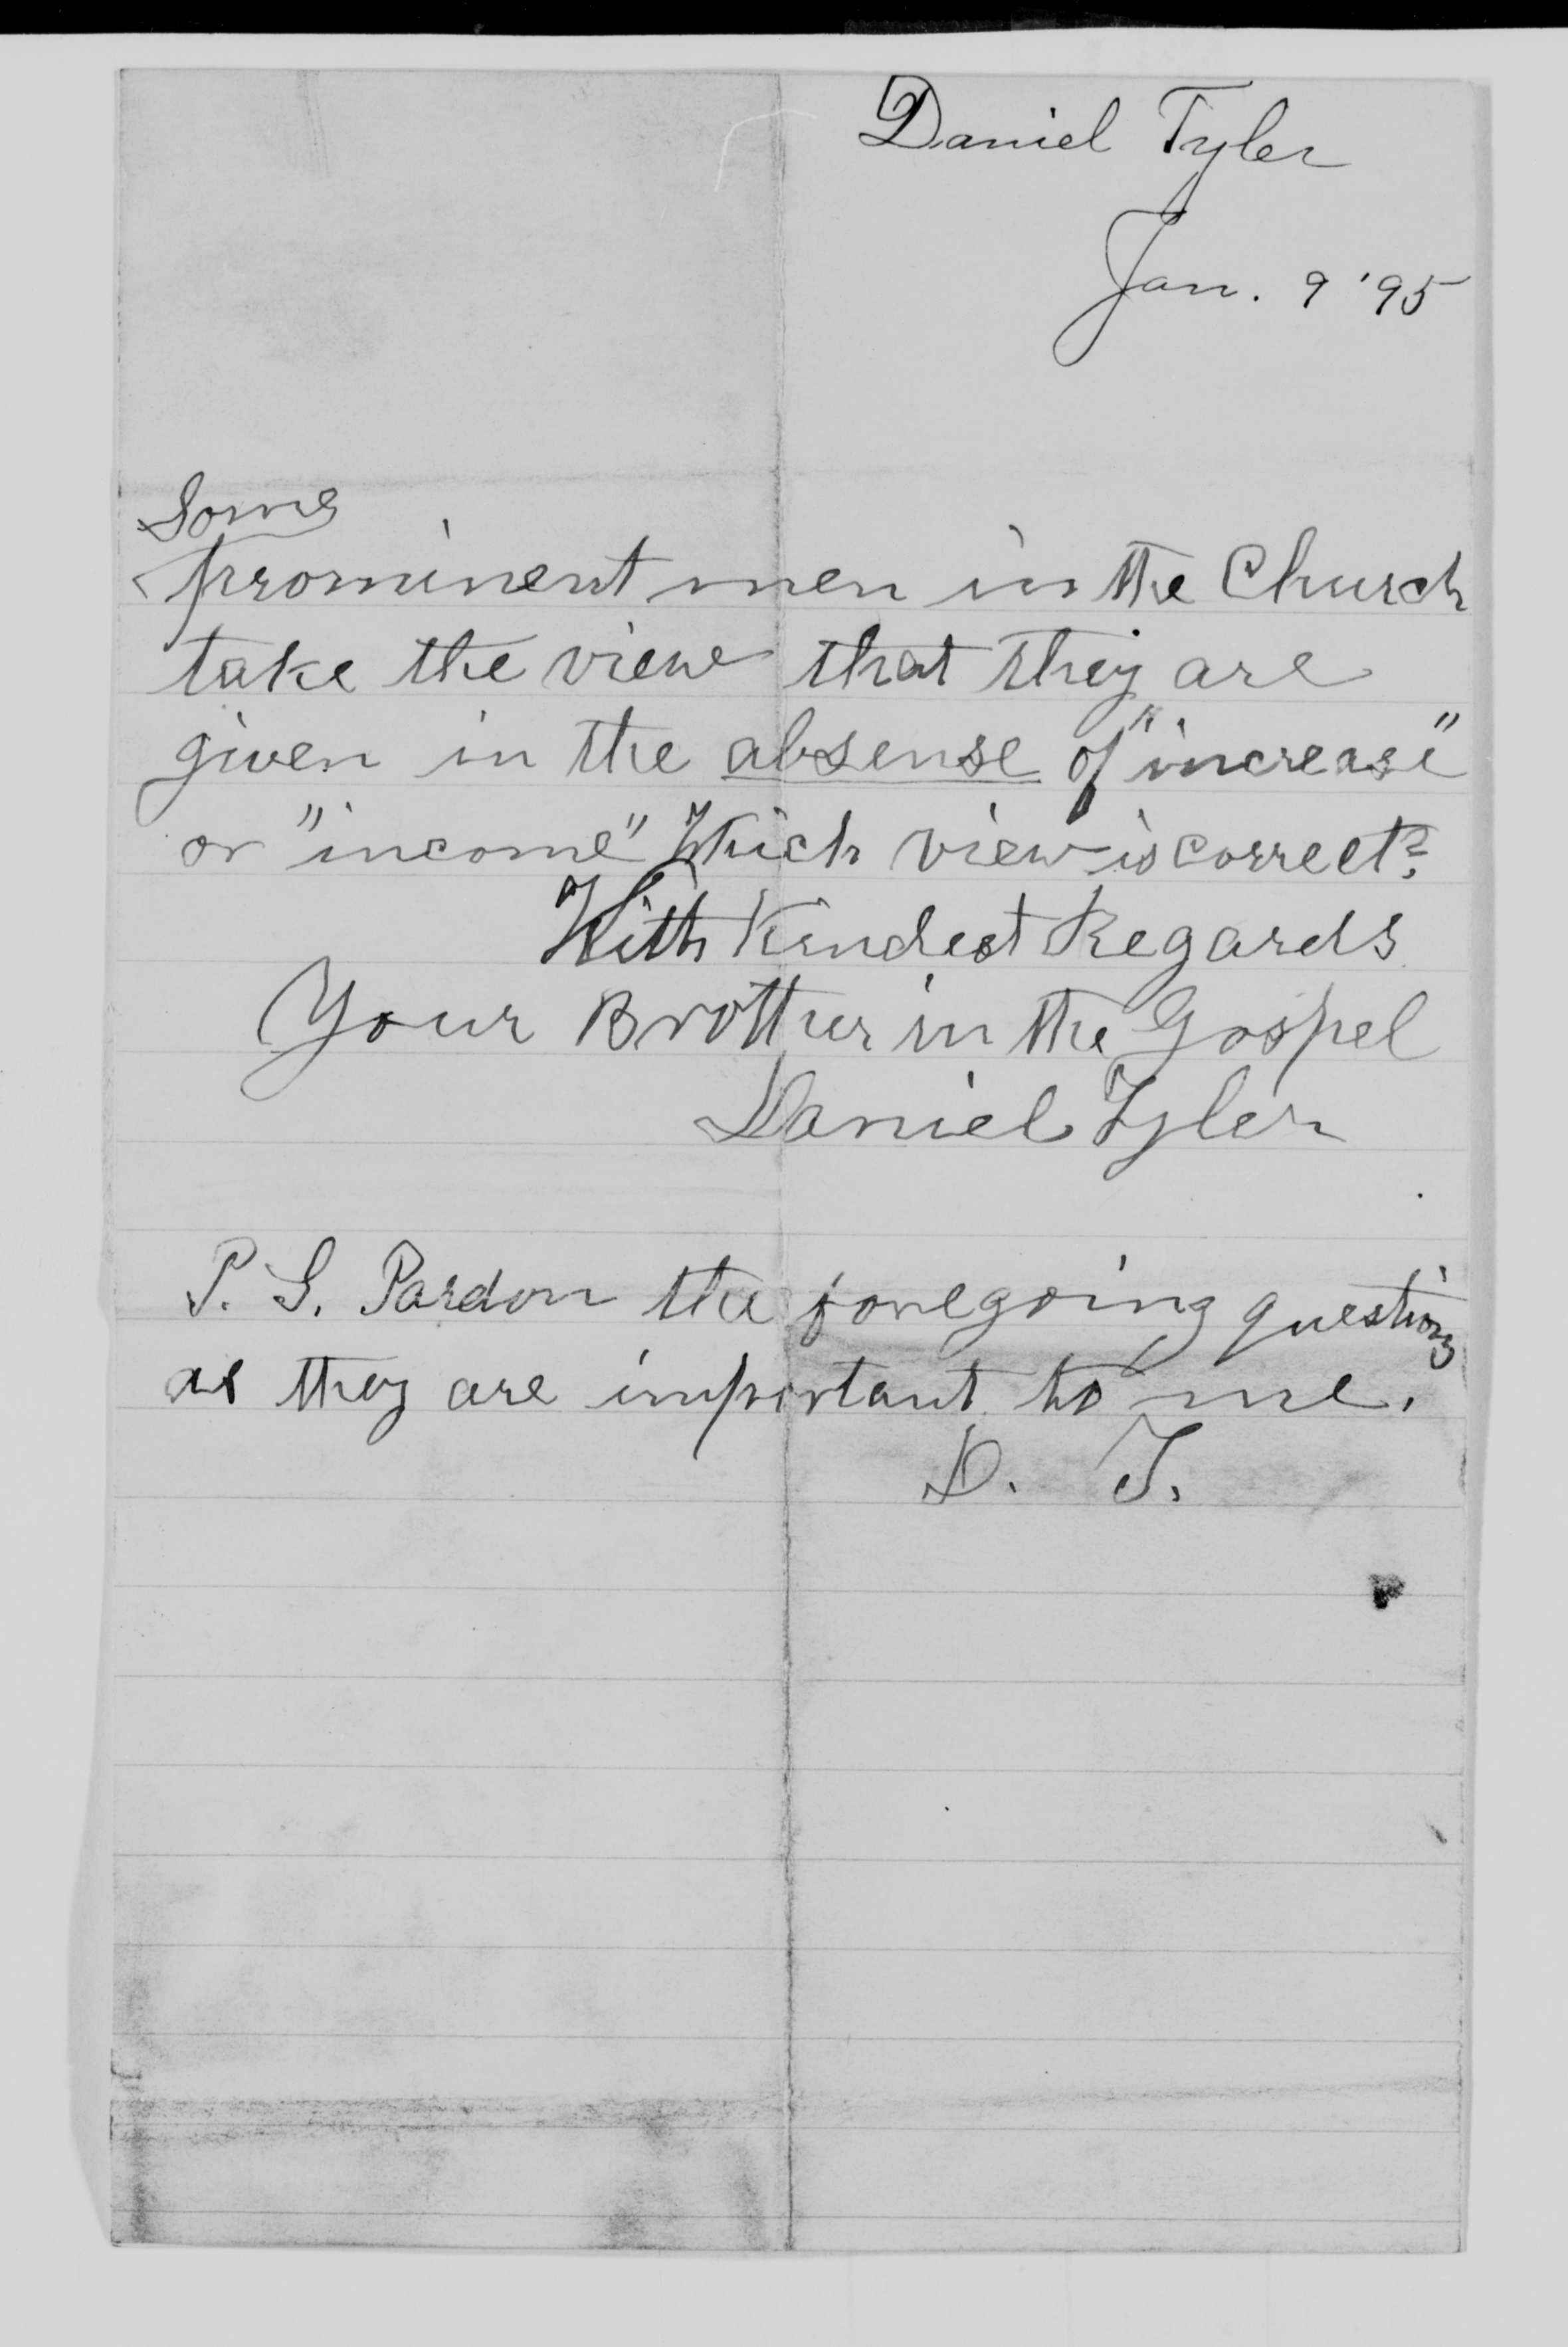 Daniel Tyler
Jan. 9 '95
Some
prominent men in the Church
take the view that they are
given in the absense of "increase"
or "income" Which view is correct?
With Kindest Regards
Your Brother in the Gospel
Daniel Tyler
P. S. Pardon the foregoing questions
as they are important to me.
D. T.